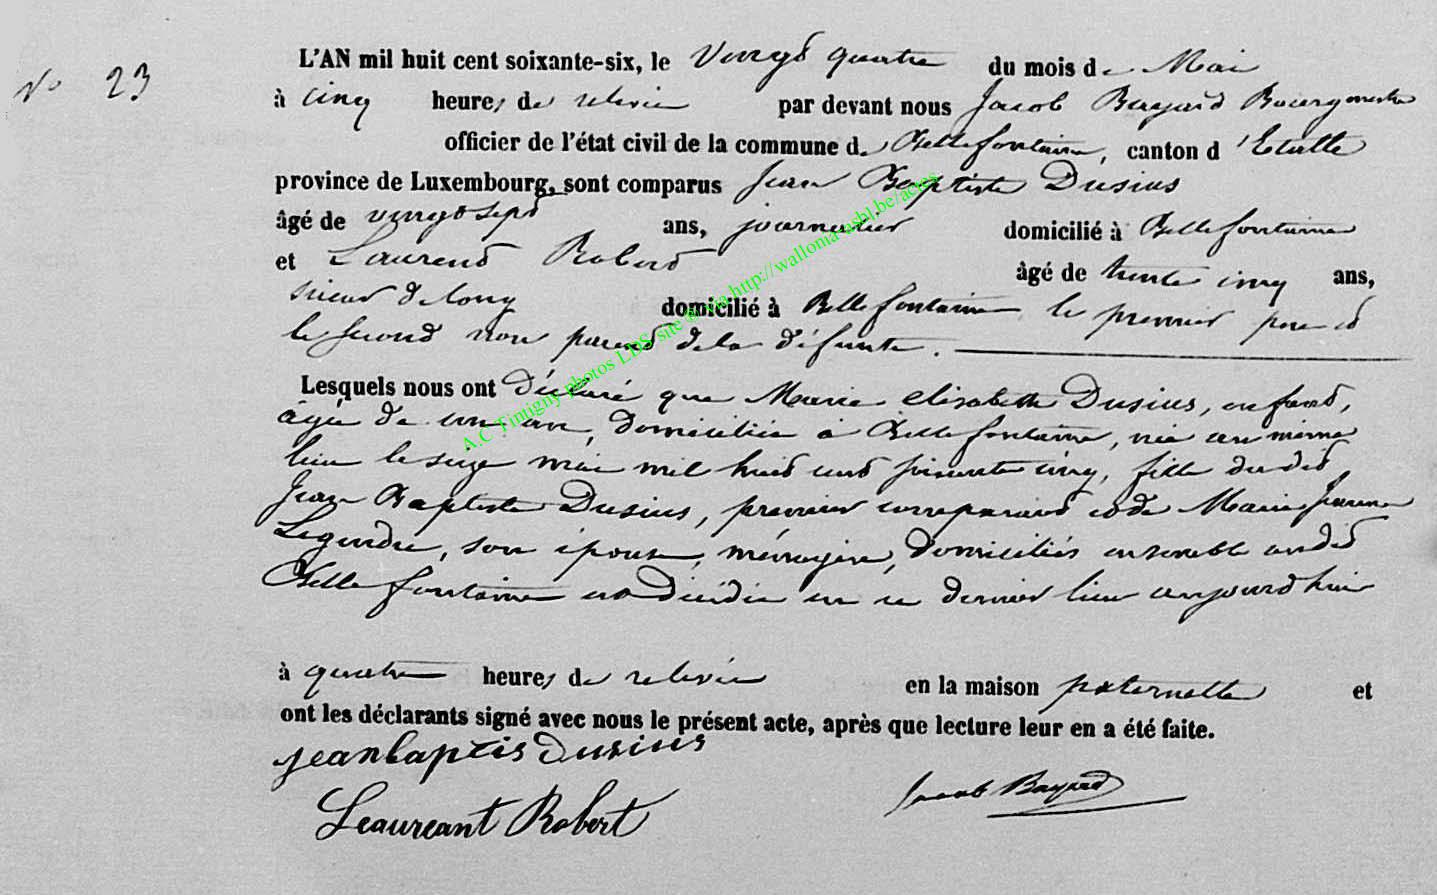 N° 23
L'AN mil huit cent soixante-six, le vingt quatre du mois de Mai
à cinq heures de relevée par devant nous Jacob Bayard Bourgmestre
officier de l'état civil de la commune de Bellefontaine, canton d'Etalle
province de Luxembourg, sont comparus Jean Baptiste Dusius
âgé de vingt sept ans, journalier domicilié à Bellefontaine
et Laurent Robert âgé de trente cinq ans,
sieur de long domicilié à Bellefontaine le premier père et
le second non parent de la défunte.
Lesquels nous ont déclaré que Marie elisabeth Dusius, enfant,
âgée de un an, domiciliée à Bellefontaine, née au même
lieu le seize mai mil huit cent soixante cinq, fille du dit
Jean Baptiste Dusius, premier comparant et de Marie Jeanne
Legendre, son épouse, ménagère, domiciliés ensemble au dit
Bellefontaine est décédée en ce dernier lieu aujourd'hui
à quatre heures de relevée en la maison paternelle et
ont les déclarants signé avec nous le présent acte, après que lecture leur en a été faite.
jeanbaptis Dusius
Leaureant Robert
Jacob Bayard
A.C Tintigny photos LDS site @ via http://wallonia-asbl.be/actes